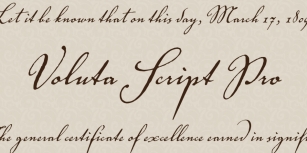 Let it be known that on this day, March 17, 180
Voluta Script Pro
he general certificate of excellence earned in signif